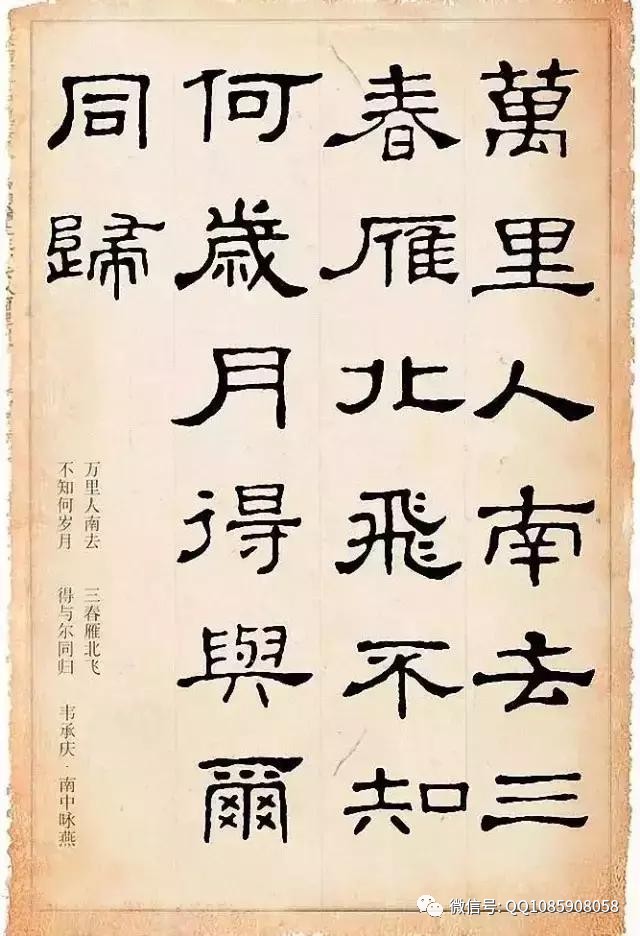 萬里人南去三
春雁北飛不知
何歲月得與爾
同歸
万里人南去 三春雁北飞
不知何岁月 得与尔同归 韦承庆·南中咏燕
微信号: QQ1085908058